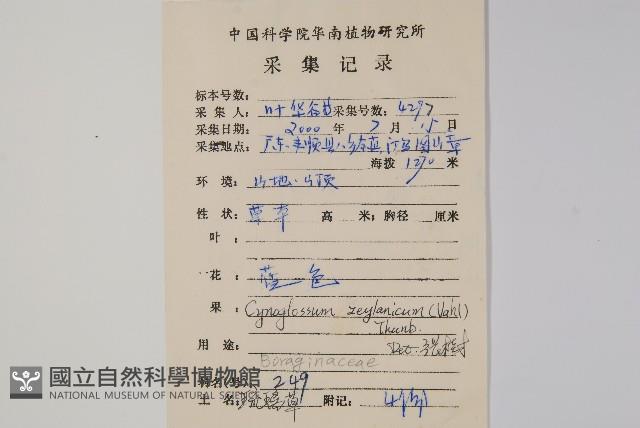 中国科学院华南植物研究所
采集记录
标本号数:
采集人: 叶华谷 采集号数: 4297
采集日期: 2000 年 7 月 15 日
采集地点: 广东 丰顺县
海拔 1290 米
环境: 山地.山顶
性状: 草本 高 米; 胸径 厘米
叶:
花: 蓝色
果: Cynoglossum zeylanicum (Vahl)
Thunb.
用途: Det.
Boraginaceae
249
土名: 琉璃草 附记:
國立自然科學博物館
NATIONAL MUSEUM OF NATURAL SCIENCE